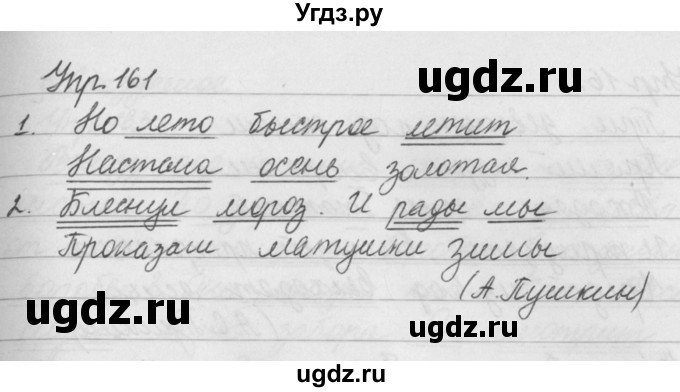 Угдз.ру
ugdz.ru
Упр. 161
ugdz.ru
1. Но лето быстрое летит
ugdz.ru
Настала осень золотая.
2. Блеснул мороз. И рады мы
Проказам матушки зимы
(А. Пушкин)
ugdz.ru
ugdz.ru
ugdz.ru